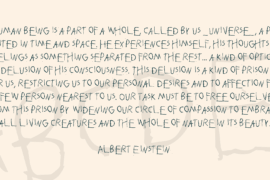 UMAN BEING IS A PART OF A WHOLE, CALLED BY US _UNIVERSE_, A P
TED IN TIME AND SPACE. HE EXPERIENCES HIMSELF, HIS THOUGHTS
ELINGS AS SOMETHING SEPARATED FROM THE REST... A KIND OF OPTIC
DELUSION OF HIS CONSCIOUSNESS. THIS DELUSION IS A KIND OF PRISON
R US, RESTRICTING US TO OUR PERSONAL DESIRES AND TO AFFECTION F
FEW PERSONS NEAREST TO US. OUR TASK MUST BE TO FREE OURSELVE
OM THIS PRISON BY WIDENING OUR CIRCLE OF COMPASSION TO EMBRA
ALL LIVING CREATURES AND THE WHOLE OF NATURE IN ITS BEAUTY.
ALBERT EINSTEIN